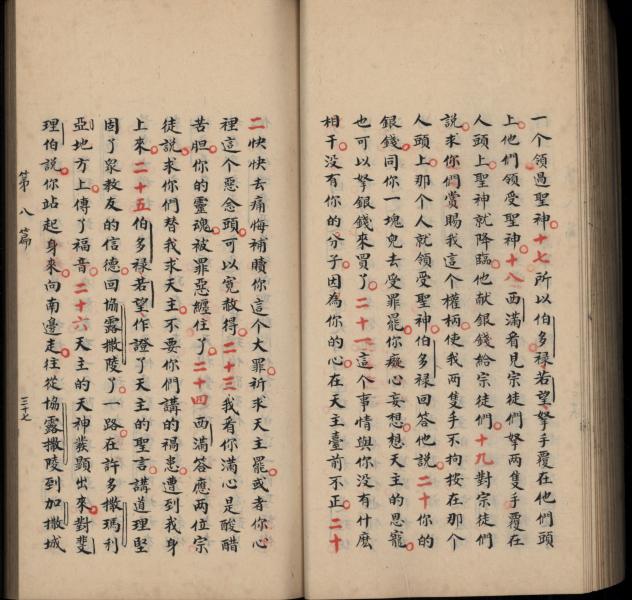 一个領過聖神十七所以伯多禄若望拏手覆在他們頭
上他們領受聖神十八西滿看見宗徒們拏两隻手覆在
人頭上聖神就降臨他献銀錢給宗徒們十九對宗徒們
說求你們賞賜我這个權柄使我两隻手不拘按在那个
人頭上那个人就領受聖神伯多禄回答他說二十你的
銀錢同你一塊兒去受罪罷你癡心妄想想天主的恩寵
也可以拏銀錢來買了二十一這个事情與你没有什麽
相干没有你的分子因為你的心在天主臺前不正二十
二快快去痛悔補贖你這个大罪祈求天主罷或者你心
裡這个惡念頭可以寬赦得二十三我看你滿心是酸醋
苦胆你的靈魂被罪惡纏住了二十四西滿答應两位宗
徒說求你們替我求天主不要你們講的禍患遭到我身
上來二十五伯多禄若望作證了天主的聖言講道理堅
固了衆教友的信德回協露撒陵了一路在許多撒瑪利
亞地方上傳了福音二十六天主的天神發顕出來對斐
理伯說你站起身來向南邊走往從協露撒陵到加撒城
第八篇 三十七